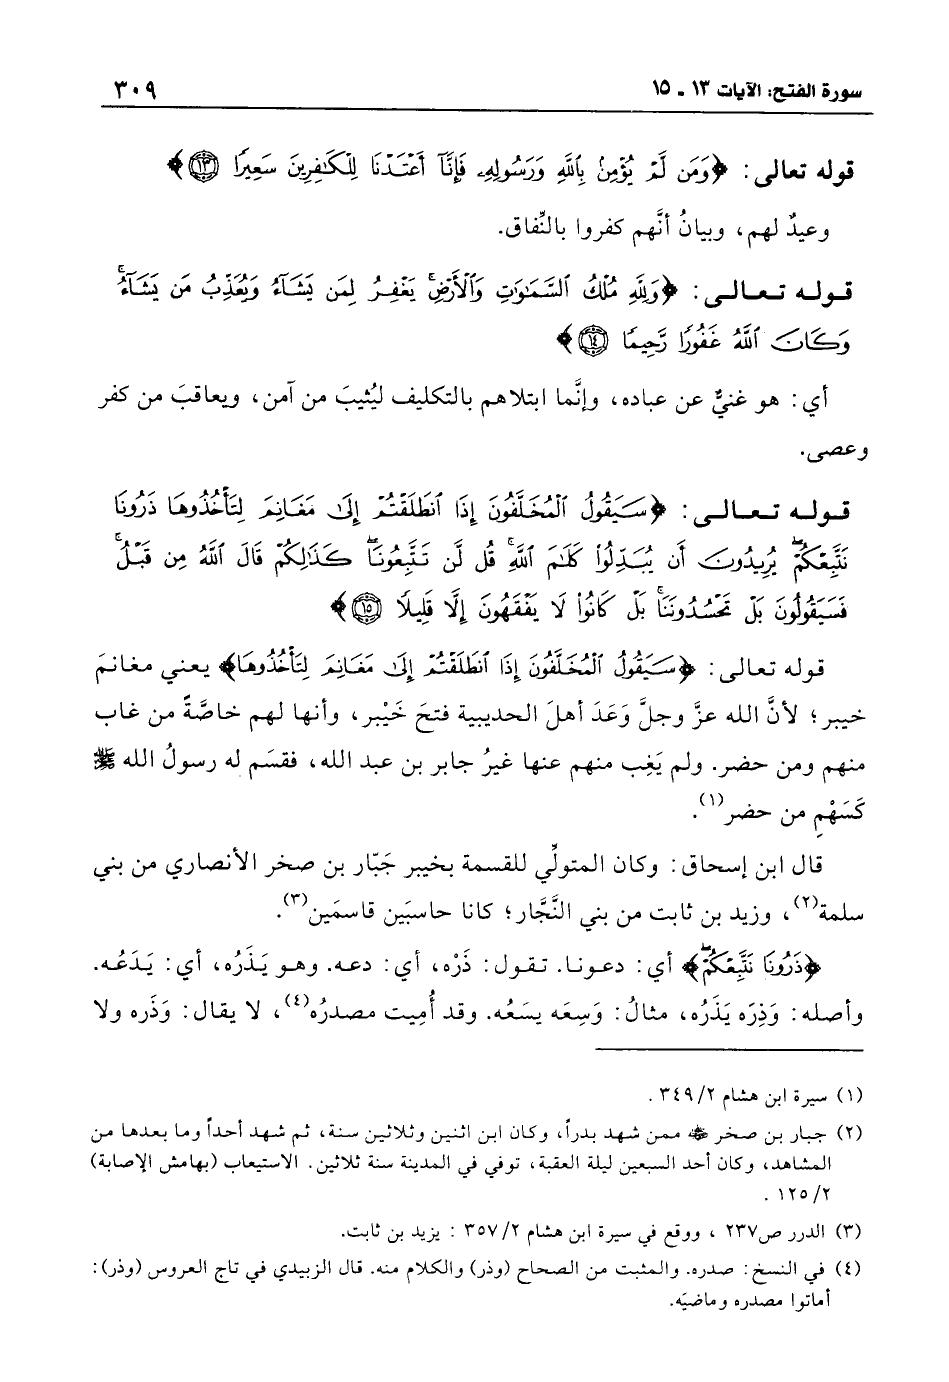 سورة الفتح: الآيات ١٣ - ١٥
٣٠٩
قوله تعالى: ﴿وَمَن لَّمْ يُؤْمِنۢ بِٱللَّهِ وَرَسُولِهِۦ فَإِنَّآ أَعْتَدْنَا لِلْكَٰفِرِينَ سَعِيرًا ۝١٣﴾
وعيدٌ لهم، وبيانُ أنَّهم كفروا بالنِّفاق.
قوله تعالى: ﴿وَلِلَّهِ مُلْكُ ٱلسَّمَٰوَٰتِ وَٱلْأَرْضِ ۚ يَغْفِرُ لِمَن يَشَآءُ وَيُعَذِّبُ مَن يَشَآءُ ۚ
وَكَانَ ٱللَّهُ غَفُورًا رَّحِيمًا ۝١٤﴾
أي: هو غنيٌّ عن عباده، وإنَّما ابتلاهم بالتكليف ليُثيبَ من آمن، ويعاقبَ من كفر
وعصى.
قوله تعالى: ﴿سَيَقُولُ ٱلْمُخَلَّفُونَ إِذَا ٱنطَلَقْتُمْ إِلَىٰ مَغَانِمَ لِتَأْخُذُوهَا ذَرُونَا
نَتَّبِعْكُمْ ۖ يُرِيدُونَ أَن يُبَدِّلُوا۟ كَلَٰمَ ٱللَّهِ ۚ قُل لَّن تَتَّبِعُونَا ۖ كَذَٰلِكُمْ قَالَ ٱللَّهُ مِن قَبْلُ ۖ
فَسَيَقُولُونَ بَلْ تَحْسُدُونَنَا ۚ بَلْ كَانُوا۟ لَا يَفْقَهُونَ إِلَّا قَلِيلًا ۝١٥﴾
قوله تعالى: ﴿سَيَقُولُ ٱلْمُخَلَّفُونَ إِذَا ٱنطَلَقْتُمْ إِلَىٰ مَغَانِمَ لِتَأْخُذُوهَا﴾ يعني مغانمَ
خيبر؛ لأنَّ الله عزَّ وجلَّ وَعَدَ أهلَ الحديبية فتحَ خَيْبر، وأنها لهم خاصَّةً من غاب
منهم ومن حضر. ولم يَغِب منهم عنها غيرُ جابر بن عبد الله، فقسَم له رسولُ الله ﷺ
كَسَهْمِ من حضر(١).
قال ابن إسحاق: وكان المتولِّي للقسمة بخيبر جَبّار بن صخر الأنصاري من بني
سلمة(٢)، وزيد بن ثابت من بني النَّجَّار؛ كانا حاسبَين قاسمَين(٣).
﴿ذَرُونَا نَتَّبِعْكُمْ ۖ﴾ أي: دعونا. تقول: ذَرْه، أي: دعه. وهو يَذَرُه، أي: يَدَعُه.
وأصله: وَذِرَه يَذَرُه، مثالُ: وَسِعَه يسَعُه. وقد أُمِيت مصدرُه(٤)، لا يقال: وَذَره ولا
(١) سيرة ابن هشام ٣٤٩/٢ .
(٢) جبار بن صخر ﷺ ممن شهد بدراً، وكان ابن اثنين وثلاثين سنة، ثم شهد أحداً وما بعدها من
المشاهد، وكان أحد السبعين ليلة العقبة، توفي في المدينة سنة ثلاثين. الاستيعاب (بهامش الإصابة)
١٢٥/٢ .
(٣) الدرر ص٢٣٧ ، ووقع في سيرة ابن هشام ٣٥٧/٢ : يزيد بن ثابت.
(٤) في النسخ: صدره. والمثبت من الصحاح (وذر) والكلام منه. قال الزبيدي في تاج العروس (وذر):
أماتوا مصدره وماضيَه.